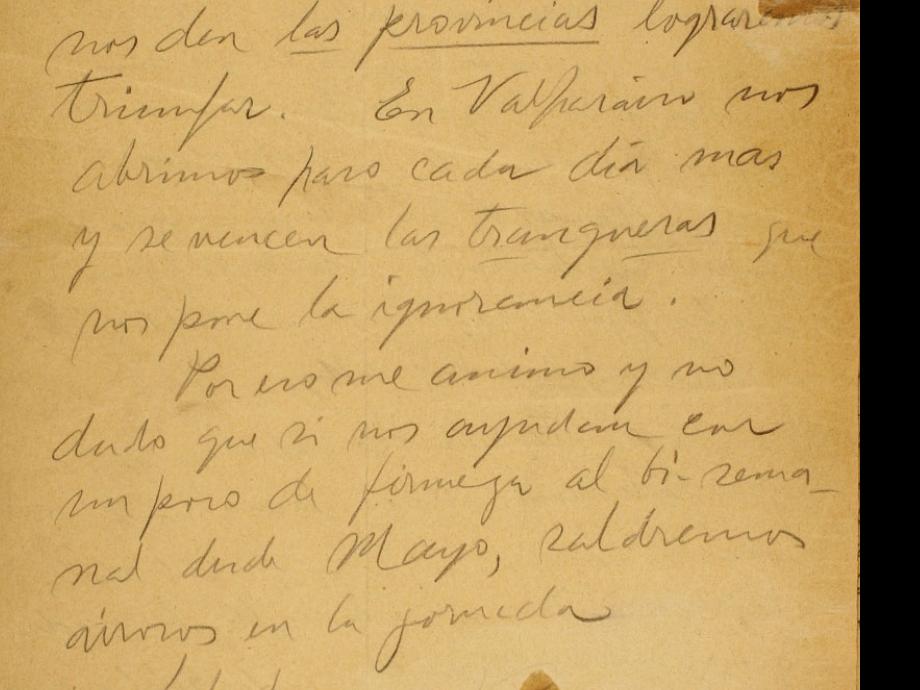 nos den las provincias lograremos
triunfar. En Valparaiso nos
abrimos paso cada día mas
y se vencen las tranqueras que
nos pone la ignorancia.
Por eso me animo y no
dudo que si nos ayudan con
un poco de firmeza al bi-sema-
nal desde Mayo, saldremos
airosos en la jornada